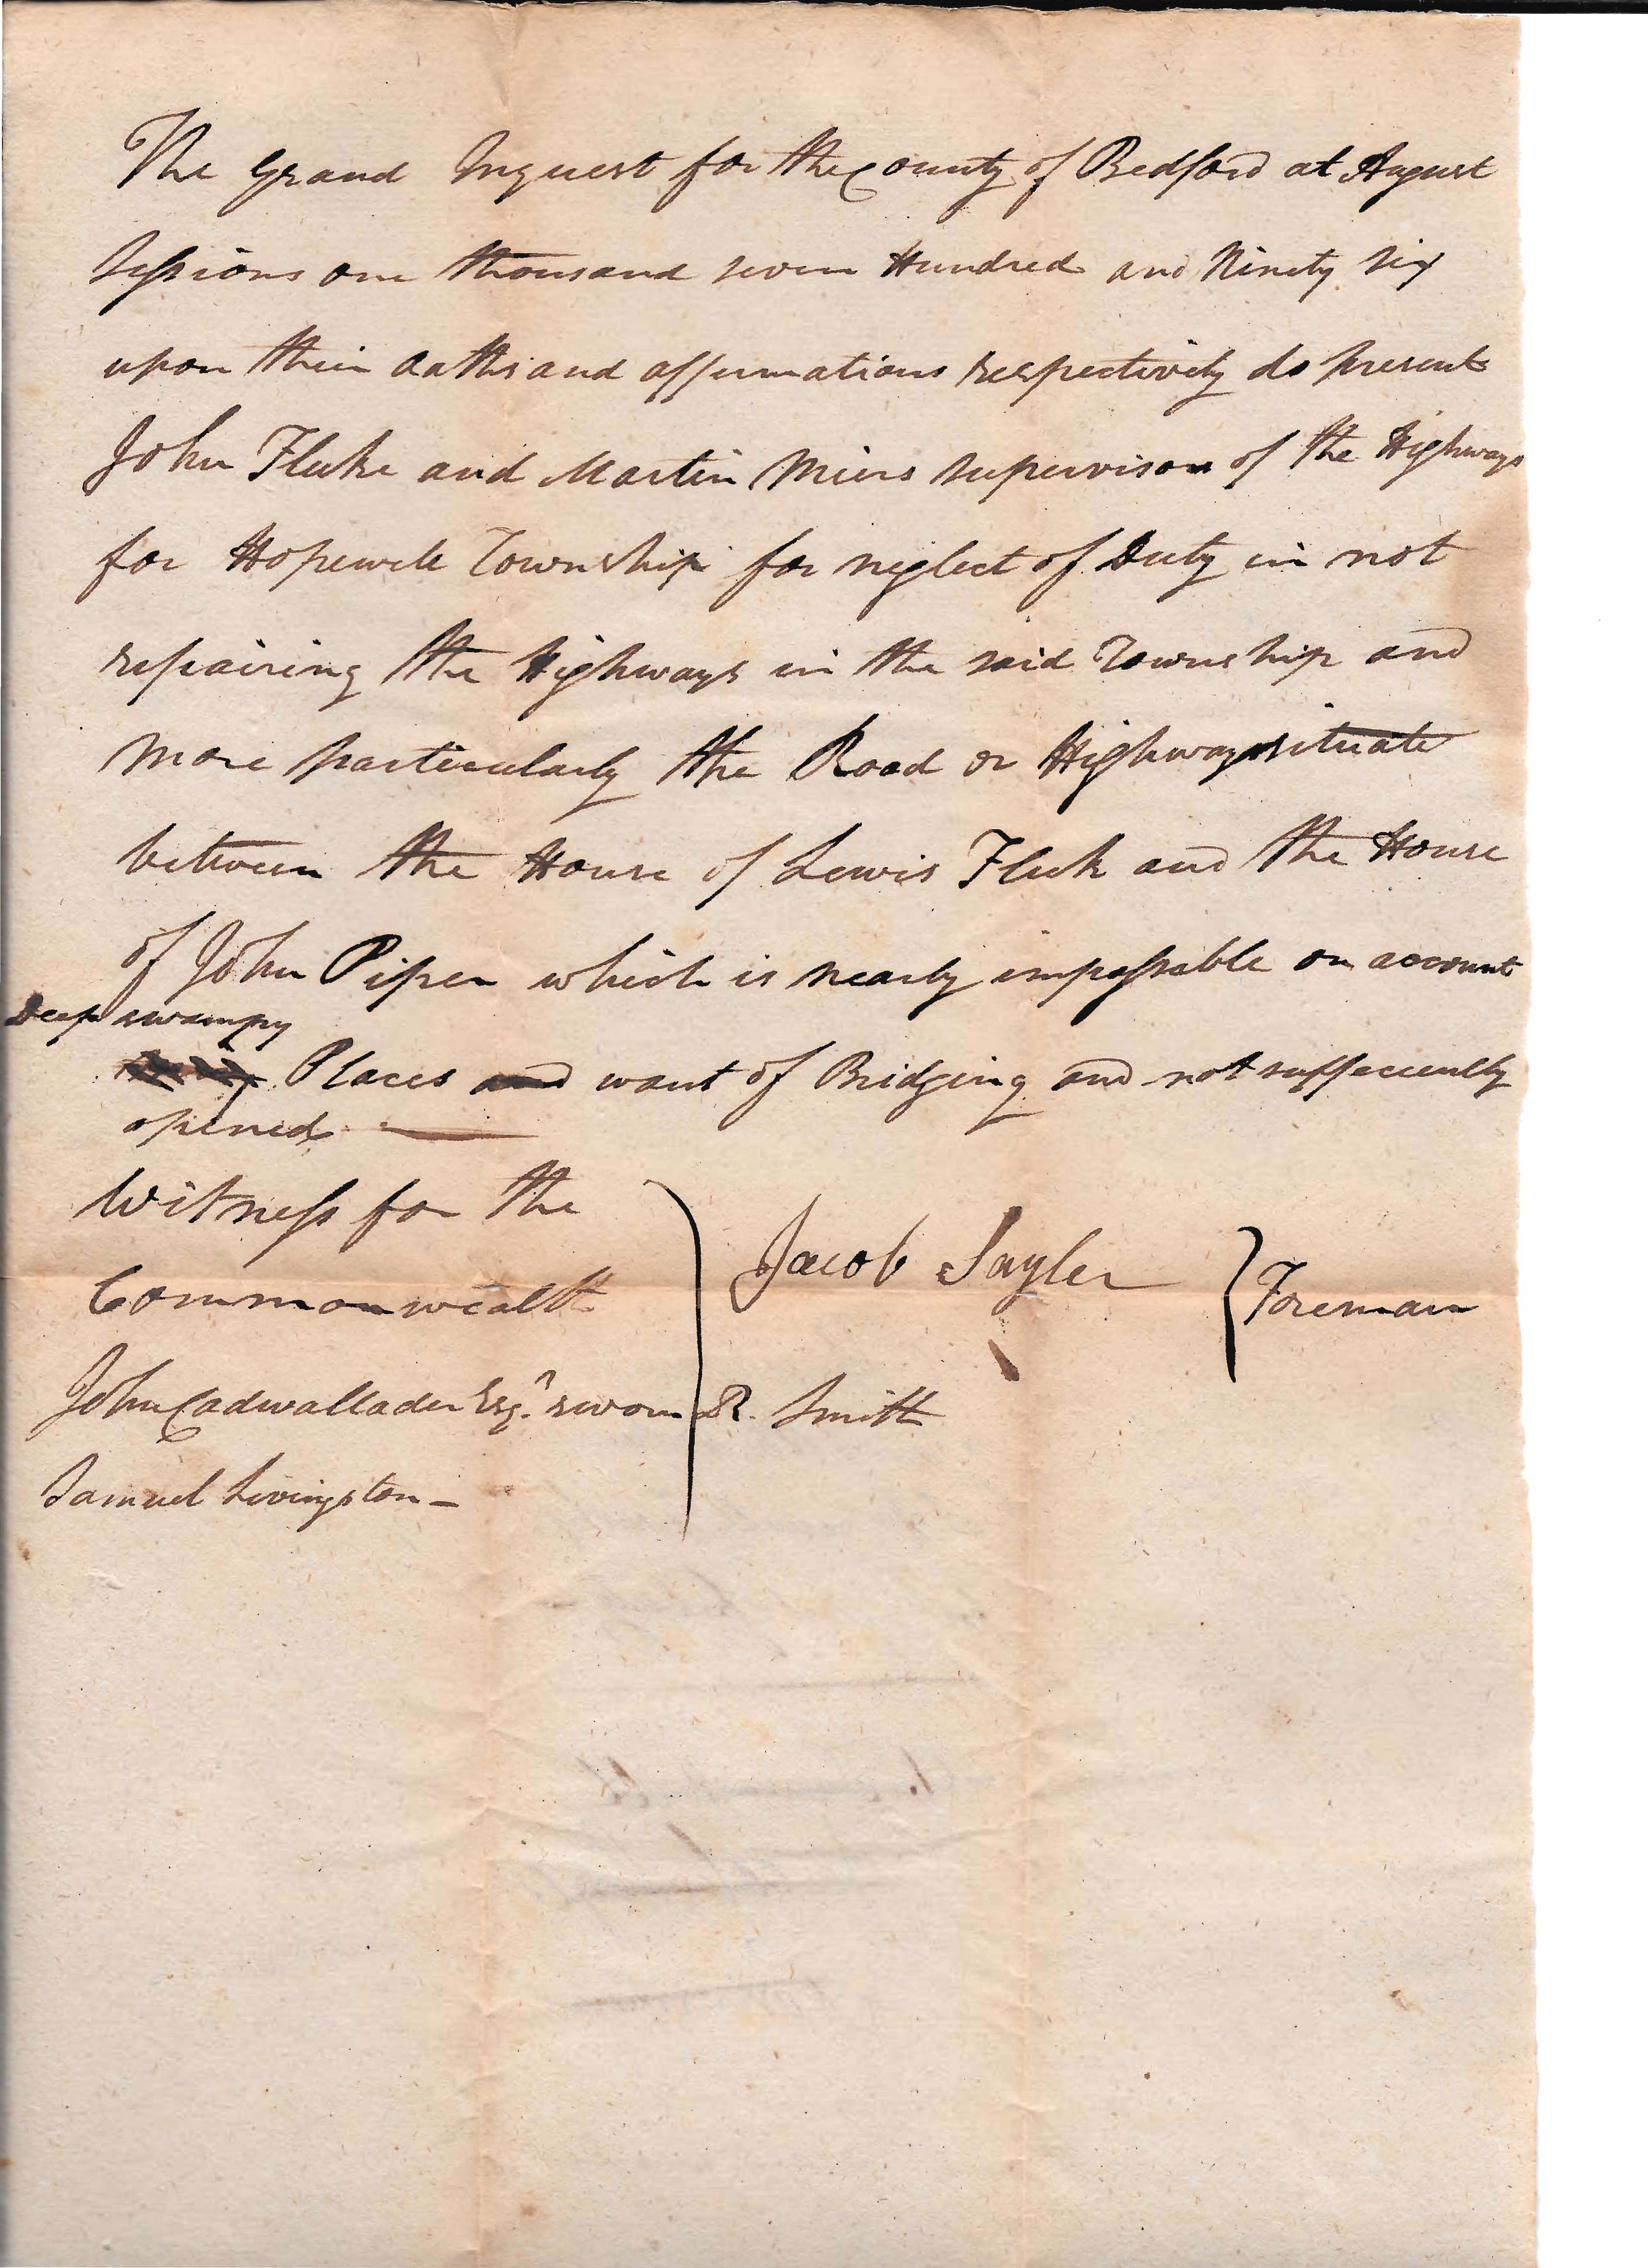 The Grand Inquest for the County of Bedford at August
Sessions one thousand seven Hundred and Ninety six
upon their oaths and affirmations respectively do present
John Fluke and Martin Miers supervisors of the Highways
for Hopewell Township for neglect of Duty in not
repairing the Highways in the said Township and
more particularly the Road or Highway situate
between the House of Lewis Fluk and the House
of John Piper which is nearly impassable on account
Deep swampy
Places and want of Bridging and not suffeciently
opened
Witness for the
Commonwealth
Jacob Sayler Foreman
John Cadwallader Esqr. sworn
R. Smith
Samuel Livingston